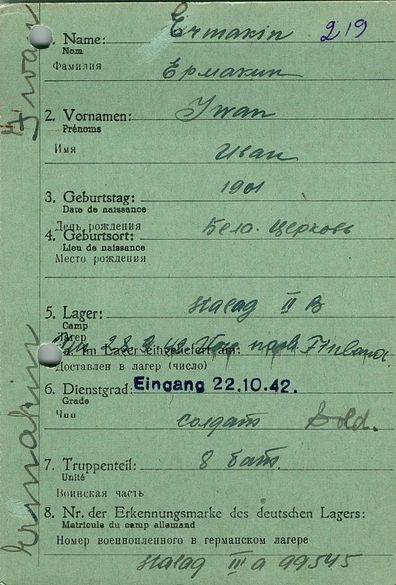 1. Name: Ermakin 219
Nom
Фамилия Ермакин
2. Vornamen: Iwan
Prénoms
Имя Иван
3. Geburtstag: 1901
Date de naissance
День рождения
4. Geburtsort: Бело. Церковь
Lieu de naissance
Место рождения
5. Lager: Stalag II B
Camp
Лагер
Am 28.9.42 nach Finland.
5a. Im Lager eingeliefert am:
Доставлен в лагер (число)
Eingang 22.10.42.
6. Dienstgrad:
Grade
Чин солдат Sold.
7. Truppenteil: 8 бат.
Unité
Воинская часть
8. Nr. der Erkennungsmarke des deutschen Lagers:
Matricule du camp allemand
Номер военнопленного в германском лагере
Stalag III a 99545
Ermakin Iwan